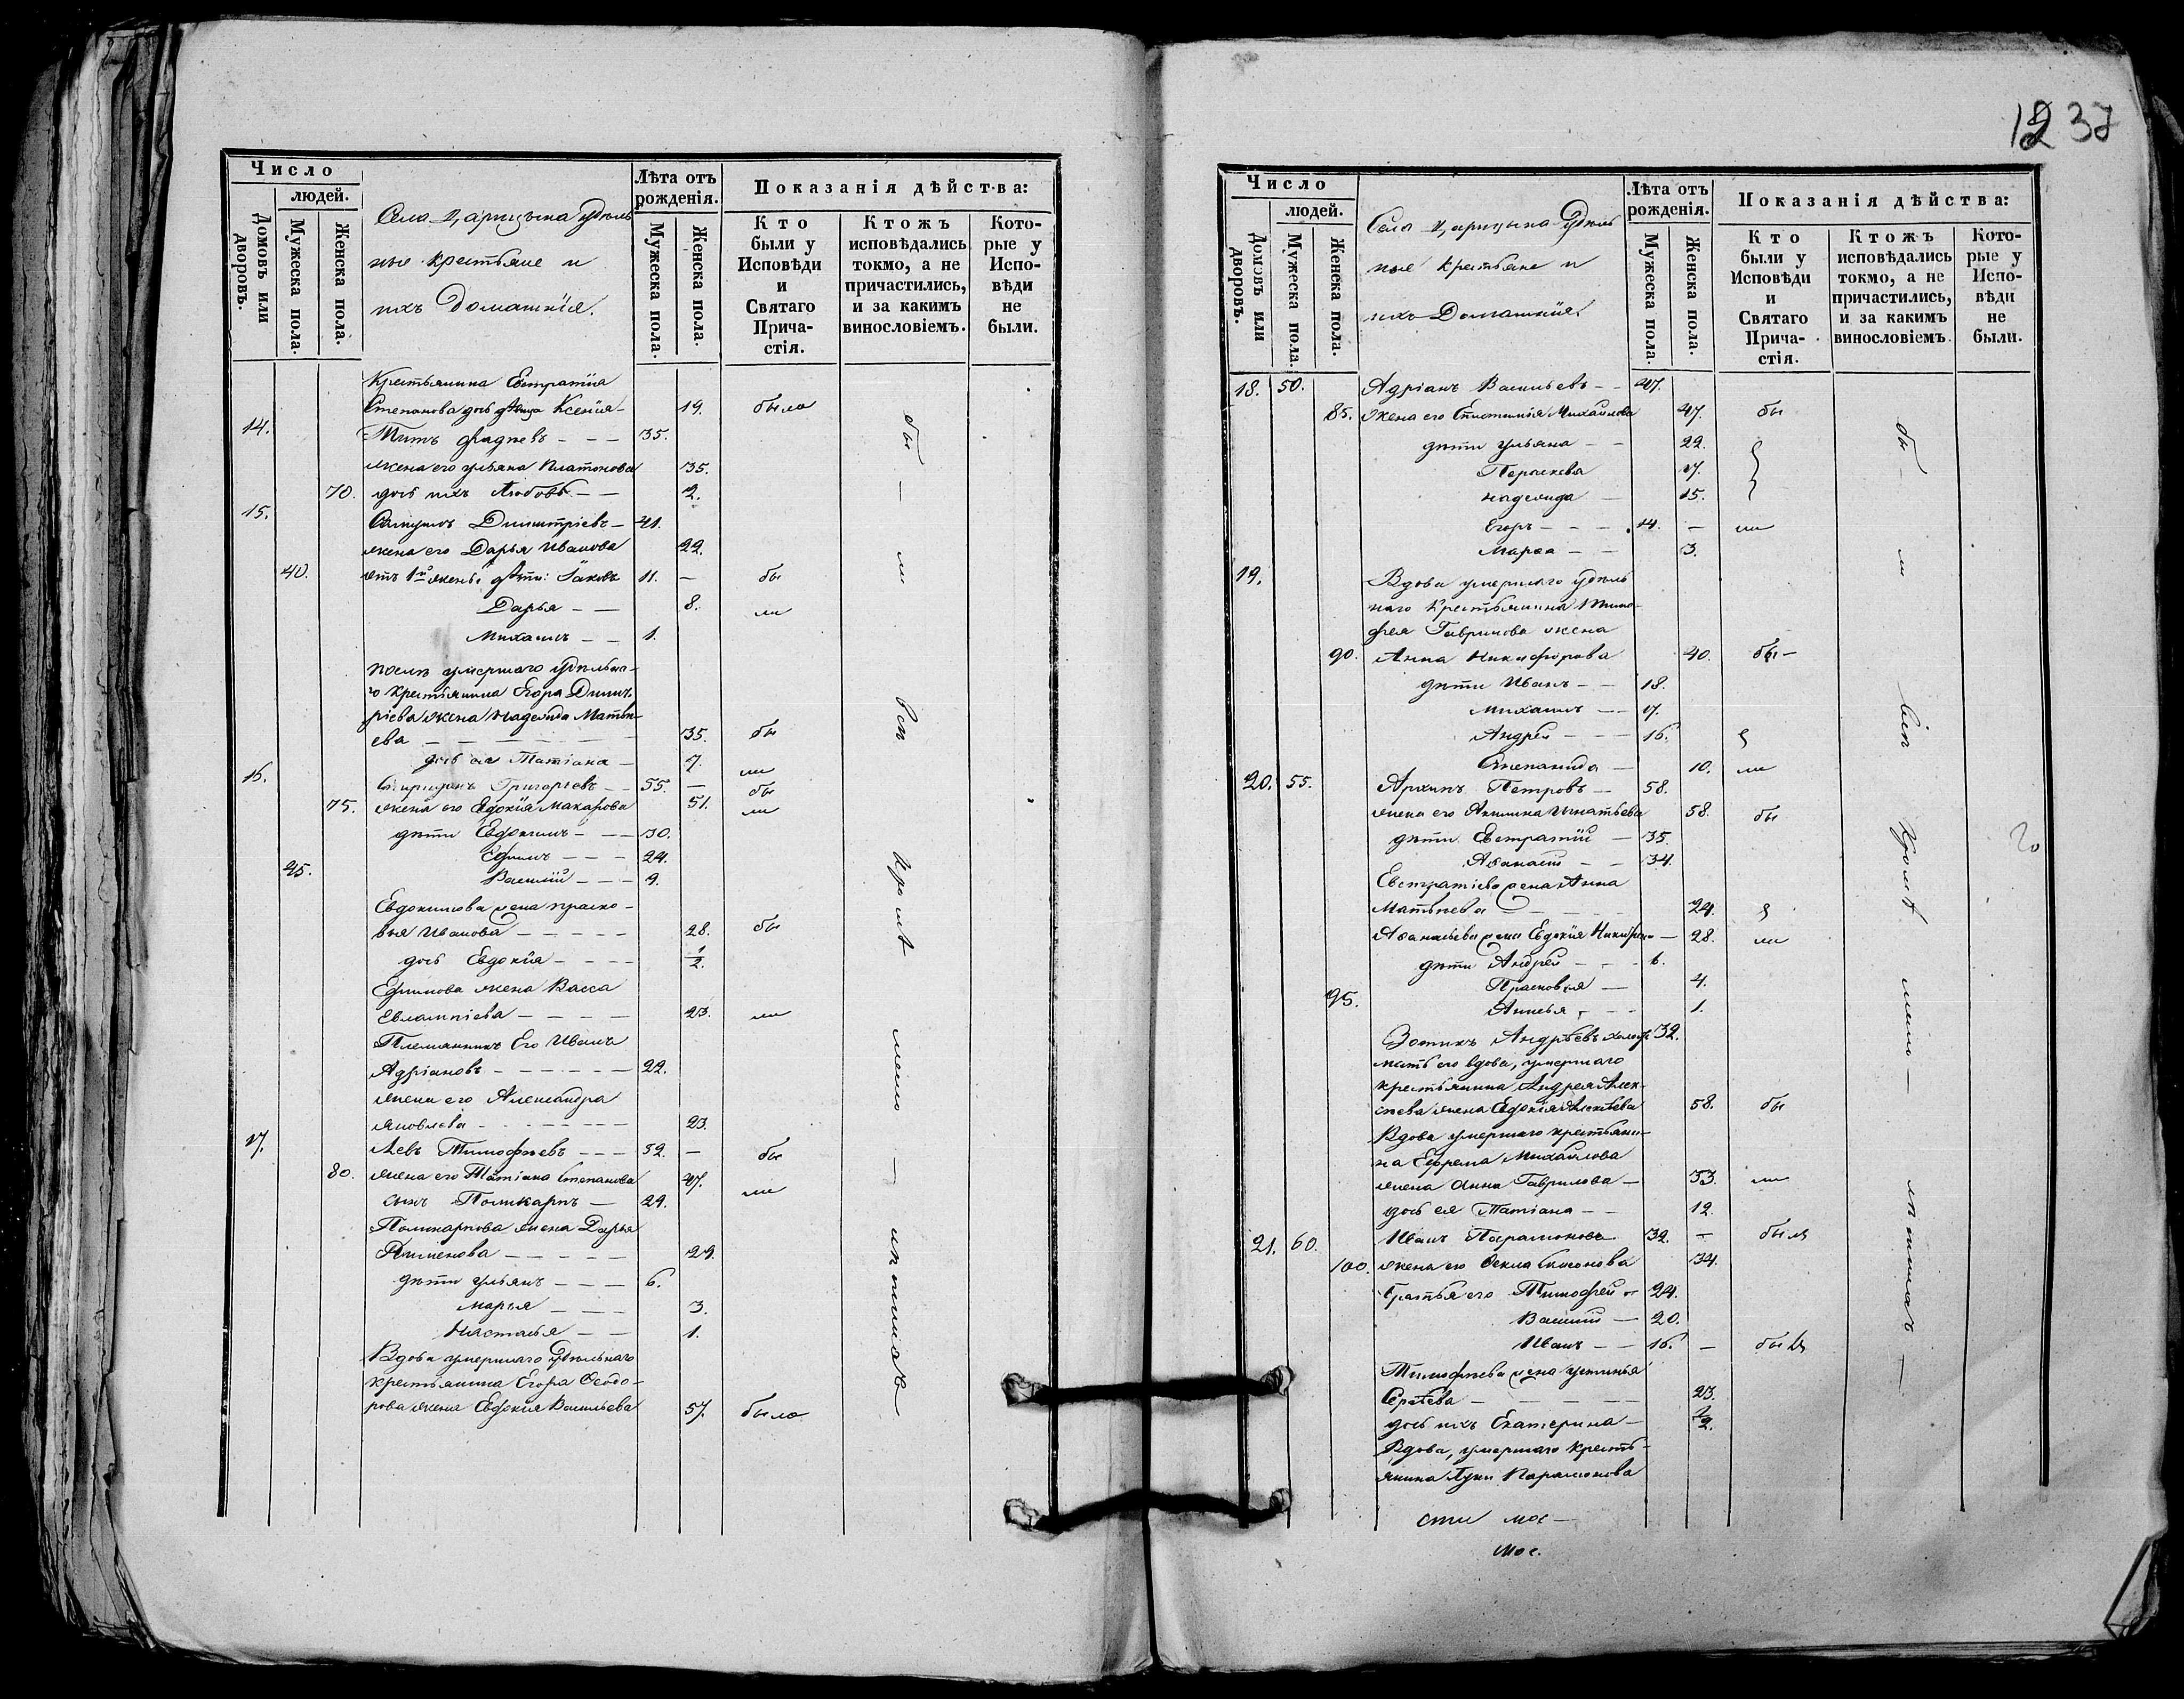 Число
людей.
Домовъ или дворовъ.
Мужеска пола.
Женска пола.
Села Царицына удѣль
ные крестьяне и
ихъ домашнія.
Лѣта отъ рожденія.
Мужеска пола.
Женска пола.
Показанія дѣйства:
Кто были у Исповѣди и Святаго Причастія.
Ктожъ исповѣдались токмо, а не причастились, и за какимъ винословіемъ.
Которые у Исповѣди не были.
Крестьянина Евстратія
Степанова дочь дѣвица Ксенія - 19. была
14. Титъ Фадѣевъ - - - 35.
жена его Ульяна Платонова 35.
70. дочь ихъ Любовь - - 2.
15. Димитріевъ - 41.
жена его Дарья Иванова 22.
40. отъ 1й жены дѣти: Іаковъ 11. - бы
Дарья - - 8. ли
Михаилъ - - 1.
послѣ умершаго удѣльна-
го крестьянина Егора Димит
ріева жена Надежда Матвѣ-
ева - - - 35. бы
дочь ея Татіана - 7. ли
16. Спиридонъ Григорьевъ - - 55. - бы
75. жена его Евдокія Макарова 51. ли
дѣти Евдокимъ - - - 30.
Ефимъ - - - 24.
45. Василій - - - 9.
Евдокимова жена Праско-
вья Иванова - - - - - 28. бы
дочь Евдокія - - - - 1/2.
Ефимова жена Васса
Евлампіева - - - - 23. ли
Племянникъ Его Иванъ
Адріановъ - - - - - - 22.
жена его Александра
Яковлева - - - - - - - 23.
17. Левъ Тимофѣевъ - - - 52. - бы
80. жена его Татіана Степанова 47. ли
сынъ Поликарпъ - 29.
Поликарпова жена Дарья
Пименова - - - - - 29.
дѣти Ульянъ - - - 6.
Марья - - - 3.
Настасья - - 1.
Вдова умершаго удѣльнаго
крестьянина Егора Ѳеодо-
рова жена Евдокія Васильева 57. была
бы - ли всѣ кромѣ мало - лѣтнихъ
1237
Число
людей.
Домовъ или дворовъ.
Мужеска пола.
Женска пола.
Села Царицына Удѣль
ные крестьяне и
ихъ Домашнія.
Лѣта отъ рожденія.
Мужеска пола.
Женска пола.
Показанія дѣйства:
Кто были у Исповѣди и Святаго Причастія.
Ктожъ исповѣдались токмо, а не причастились, и за какимъ винословіемъ.
Которые у Исповѣди не были.
18. 50. Адріанъ Васильевъ - - 47.
85. жена его Михайлова 47. бы
дѣти Ульяна - - 22.
Параскева 17.
Надежда - 15.
Егоръ - - - 14. - ли
Марѳа - - 3.
19. Вдова умершаго удѣль
наго крестьянина Тимо-
фея Гаврилова жена
90. Анна Никифорова 40. бы -
дѣти Иванъ - - 18.
Михаилъ - - 17.
Андрей - - - 16.
Степанида - 10. ли
20. 55. Архипъ Петровъ - 58.
жена его Акилина Игнатьева 58. бы
дѣти Евстратій - 35.
Аѳанасій - - 34.
Евстратіева жена Анна
Матвѣева - - - 24.
Аѳанасьева жена Евдокія - 28. ли
дѣти Андрей - - - 6.
Прасковья - 4.
95. Анисья - - - 1.
Зотикъ Андрѣевъ холостъ 32.
мать его вдова, умершаго
крестьянина Андрея Алек-
сѣева жена Евдокія Алексѣева 58. бы
Вдова умершаго крестьяни-
на Ефрема Михайлова
жена Анна Гаврилова - 53. ли
дочь ея Татіана - - 12.
21. 60. Иванъ Парамоновъ 32. - былъ
100. жена его Ѳекла 34.
братья его Тимофей - 24.
Василій - 20.
Иванъ - - 16. - былъ
Тимофѣева жена Устинья
Сергѣева - - - - 23.
дочь ихъ Екатерина - 1/2.
Вдова, умершаго кресть-
янина Луки Парамонова
бы - ли всѣ кромѣ мало - лѣтнихъ -